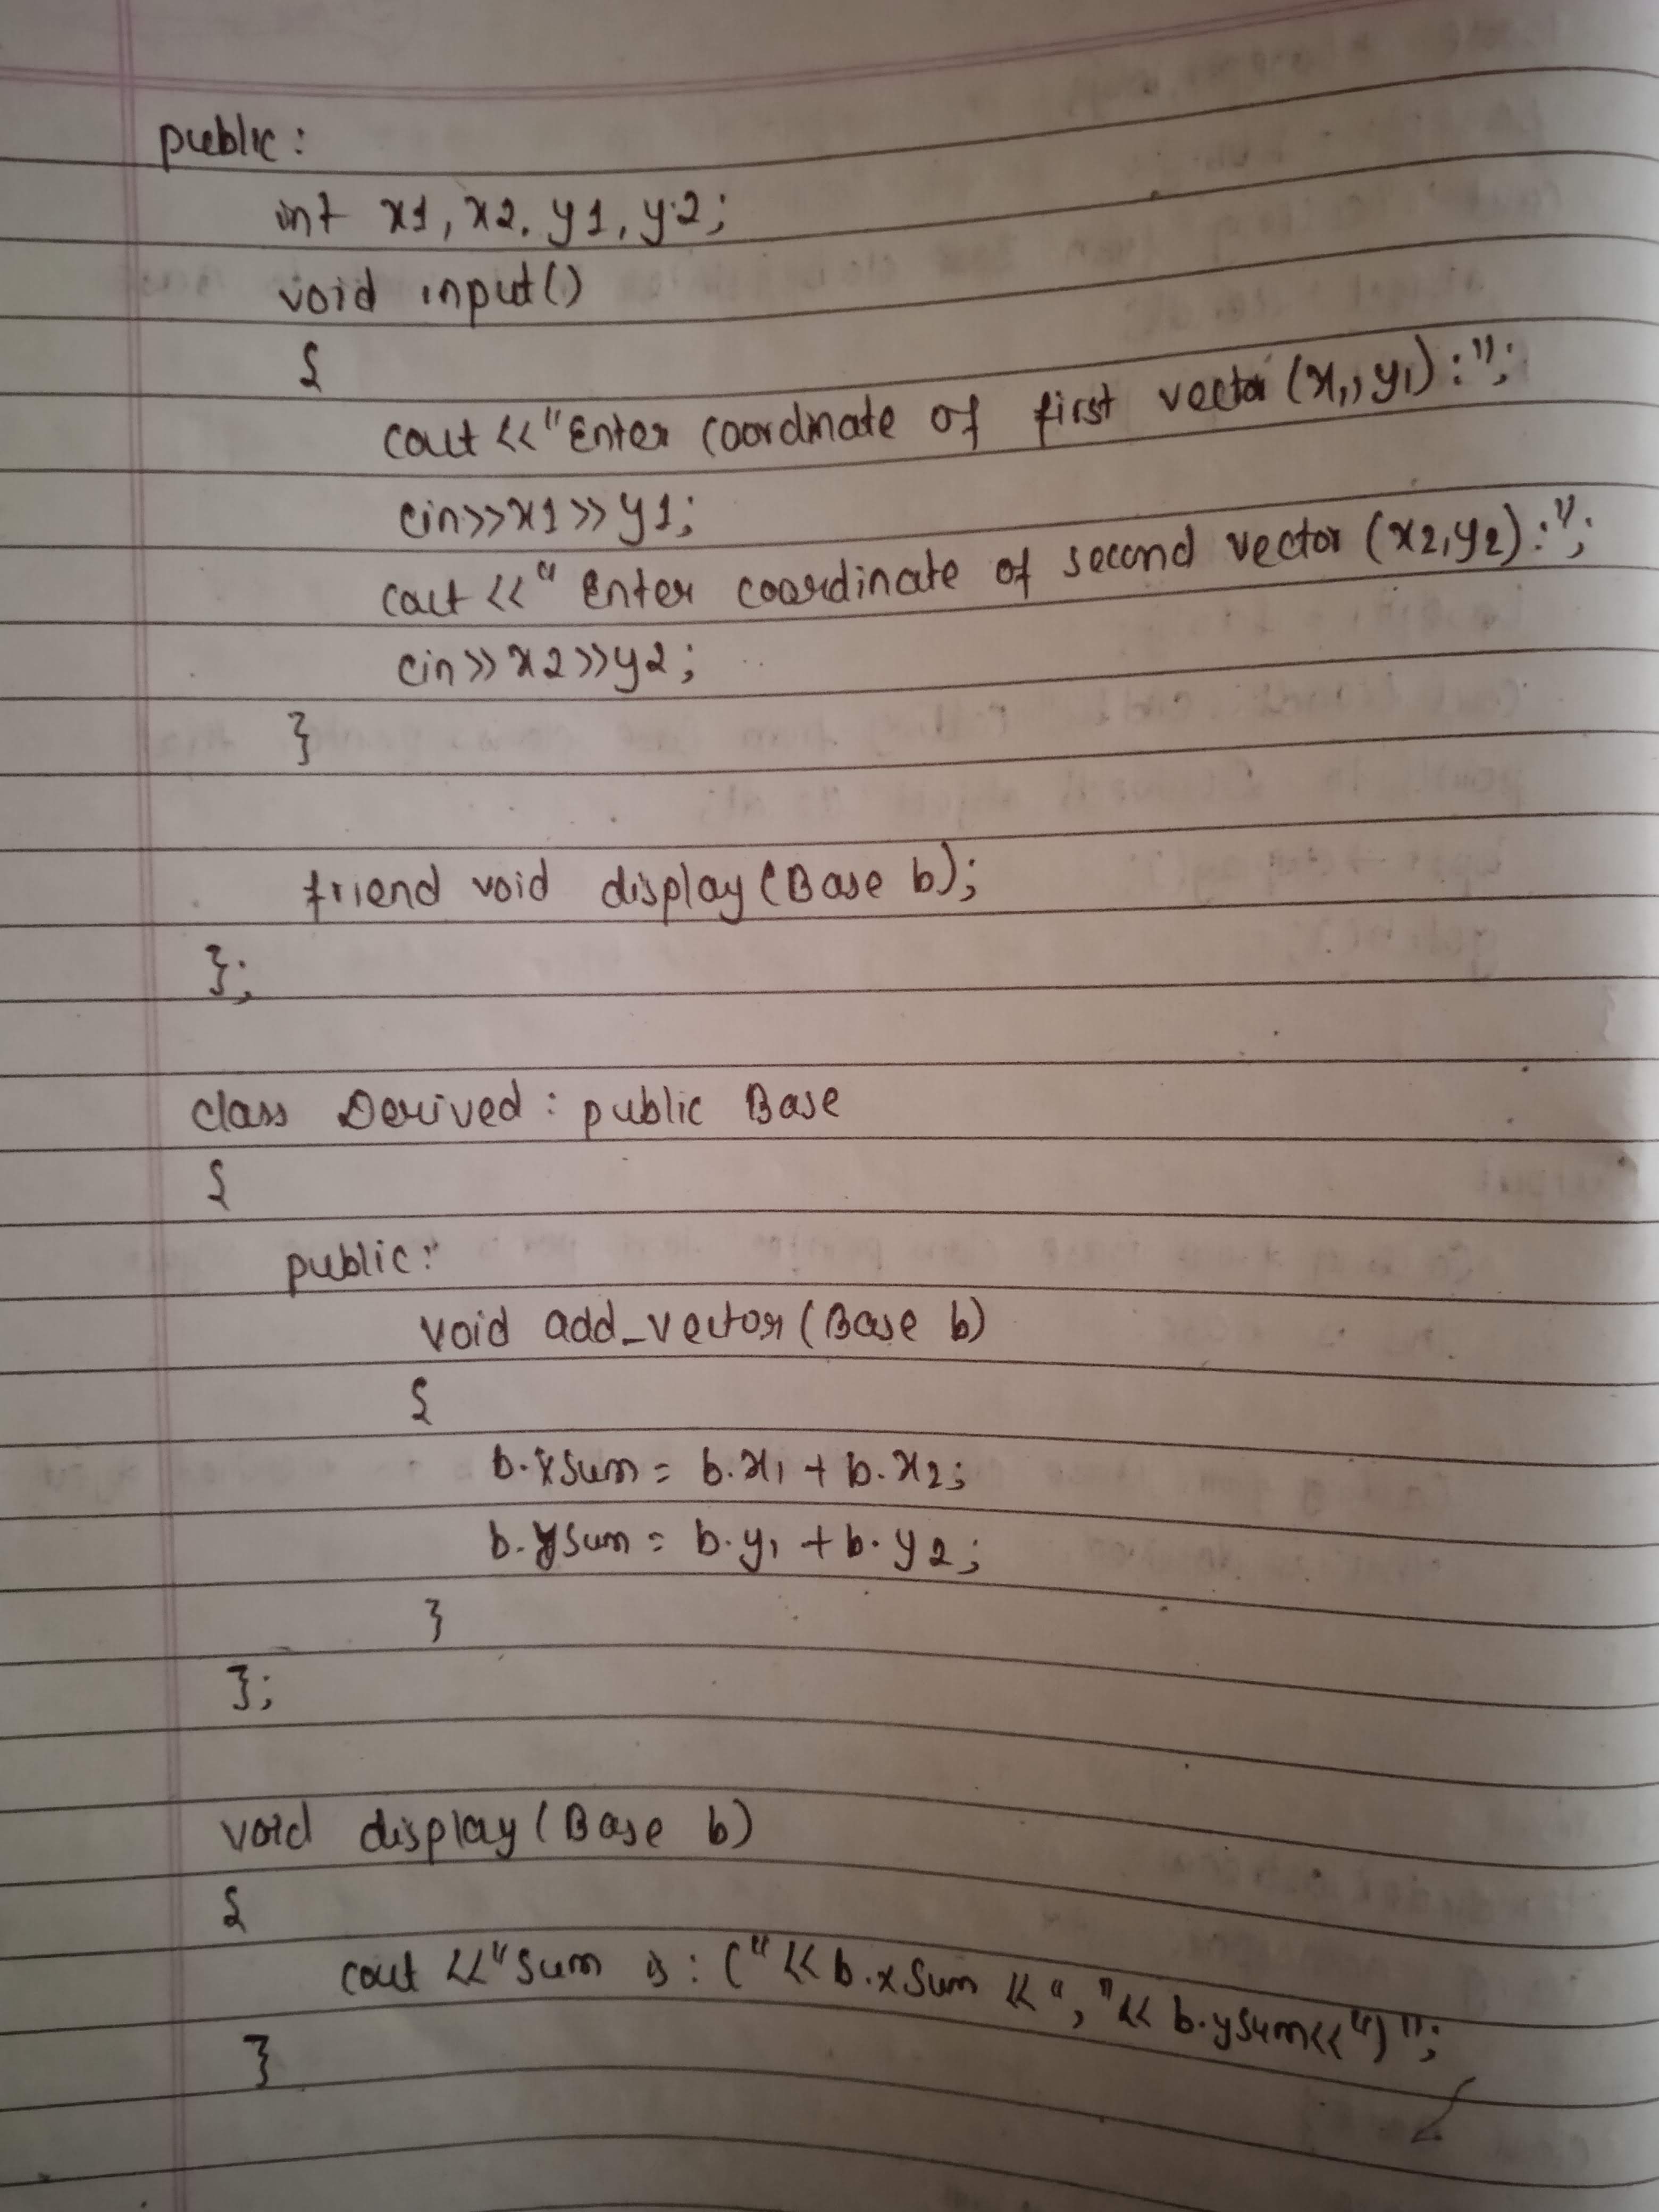 public:
int x1, x2, y1, y2;
void input()
{
cout <<"Enter coordinate of first vector (x1, y1) :";
cin>>x1>>y1;
cout <<" Enter coordinate of second vector (x2,y2) :";
cin>>x2>>y2;
}
friend void display (Base b);
};
class Derived : public Base
{
public:
void add_vector (Base b)
{
b.xsum = b.x1 + b.x2;
b.ysum = b.y1 + b.y2;
}
};
void display (Base b)
{
cout <<"Sum is : (" << b.xsum << "," << b.ysum<<")";
}